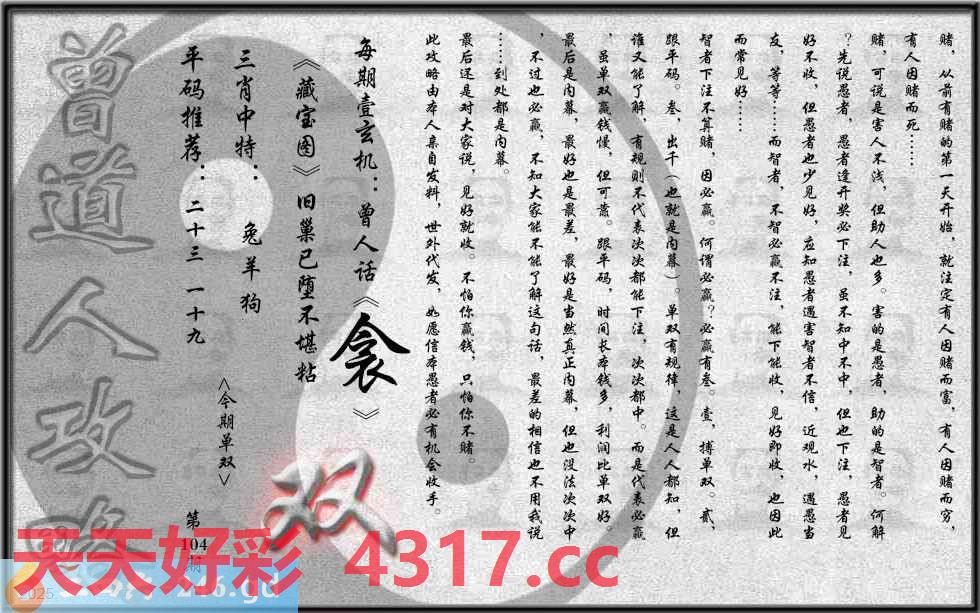 赌，从前有赌的第一天开始，就注定有人因赌而富，有人因赌而穷，
有人因赌而死……
赌，可说是害人不浅，但助人也多。害的是愚者，助的是智者。何解
？先说愚者，愚者逢开奖必下注，虽不知中不中，但也下注，愚者见
好不收，但愚者也少见好，应知愚者遇害智者不信，近观水，遇愚当
友，等等……而智者，不智必赢不注，能下能收，见好即收，也因此
而常见好……
智者下注不算赌，因必赢。何谓必赢？必赢有叁。壹，搏单双。贰，
跟平码。叁，出千（也就是内幕）。单双有规律，这是人人都知，但
谁又能了解，有规则不代表次次都能下注，次次都中。而是代表必赢
，虽单双赢钱慢，但可靠。跟平码，时间长本钱多，利润比单双好。
最后是内幕，最好也是最差，最好是当然真正内幕，但也没法次次中
，不过也必赢，不知大家能不能了解这句话，最差的相信也不用我说
……到处都是内幕。
最后还是对大家说，见好就收。不怕你赢钱，只怕你不赌。
此攻略由本人亲自发料，世外代发，如愿信本愚者必有机会收手。
每期壹玄机：曾人话《衾》
《藏宝图》旧巢已堕不堪粘
三肖中特：兔羊狗
平码推荐：二十三 一十九
<今期单双>
双
第104期
曾道人攻略
天天好彩 4317.cc
2025
246.gd